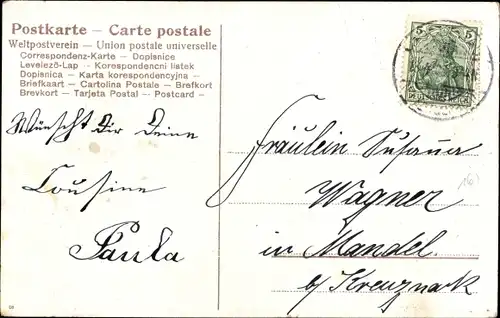 Postkarte — Carte postale
Weltpostverein — Union postale universelle
Correspondenz-Karte — Dopisnice
Levelező-Lap — Korespondencni listek
Dopisnica — Karta korespondencyjna —
Briefkaart — Cartolina Postale — Brefkort
Brevkort — Tarjeta Postal — Postcard —
5 5
Wünscht Dir Deine
Cousine
Paula
Fräulein Susanna
Wagner
in Mandel.
b/ Kreuznach